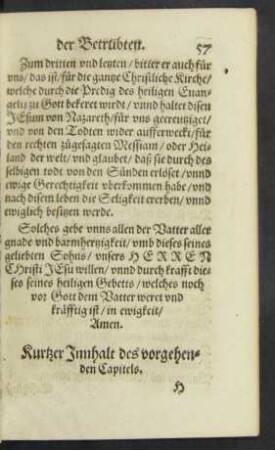 der Betrübten. 57
Zum dritten vnd letzten / bittet er auch für
vns / das ist / für die gantze Christliche Kirche /
welche durch die Predig des heiligen Euan-
gelij zu Gott bekeret wirdt / vnnd haltet disen
JEsum von Nazareth / für vns gecreutziget /
vnd von den Todten wider aufferweckt / für
den rechten zůgesagten Messiam / oder Hei-
land der welt / vnd glaubet / daß sie durch des
selbigen todt von den Sünden erlöset / vnnd
ewige Gerechtigkeit vberkommen habe / vnd
nach disem leben die Seligkeit ererben / vnnd
ewiglich besitzen werde.
Solches gebe vnns allen der Vatter aller
gnade vnd barmhertzigkeit / vmb dieses seines
geliebten Sohns / vnsers HERREN
CHristi JEsu willen / vnnd durch krafft die-
ses seines heiligen Gebetts / welches noch
vor Gott dem Vatter weret vnd
kräfftig ist / in ewigkeit /
Amen.
Kurtzer Innhalt des vorgehen-
den Capitels.
H